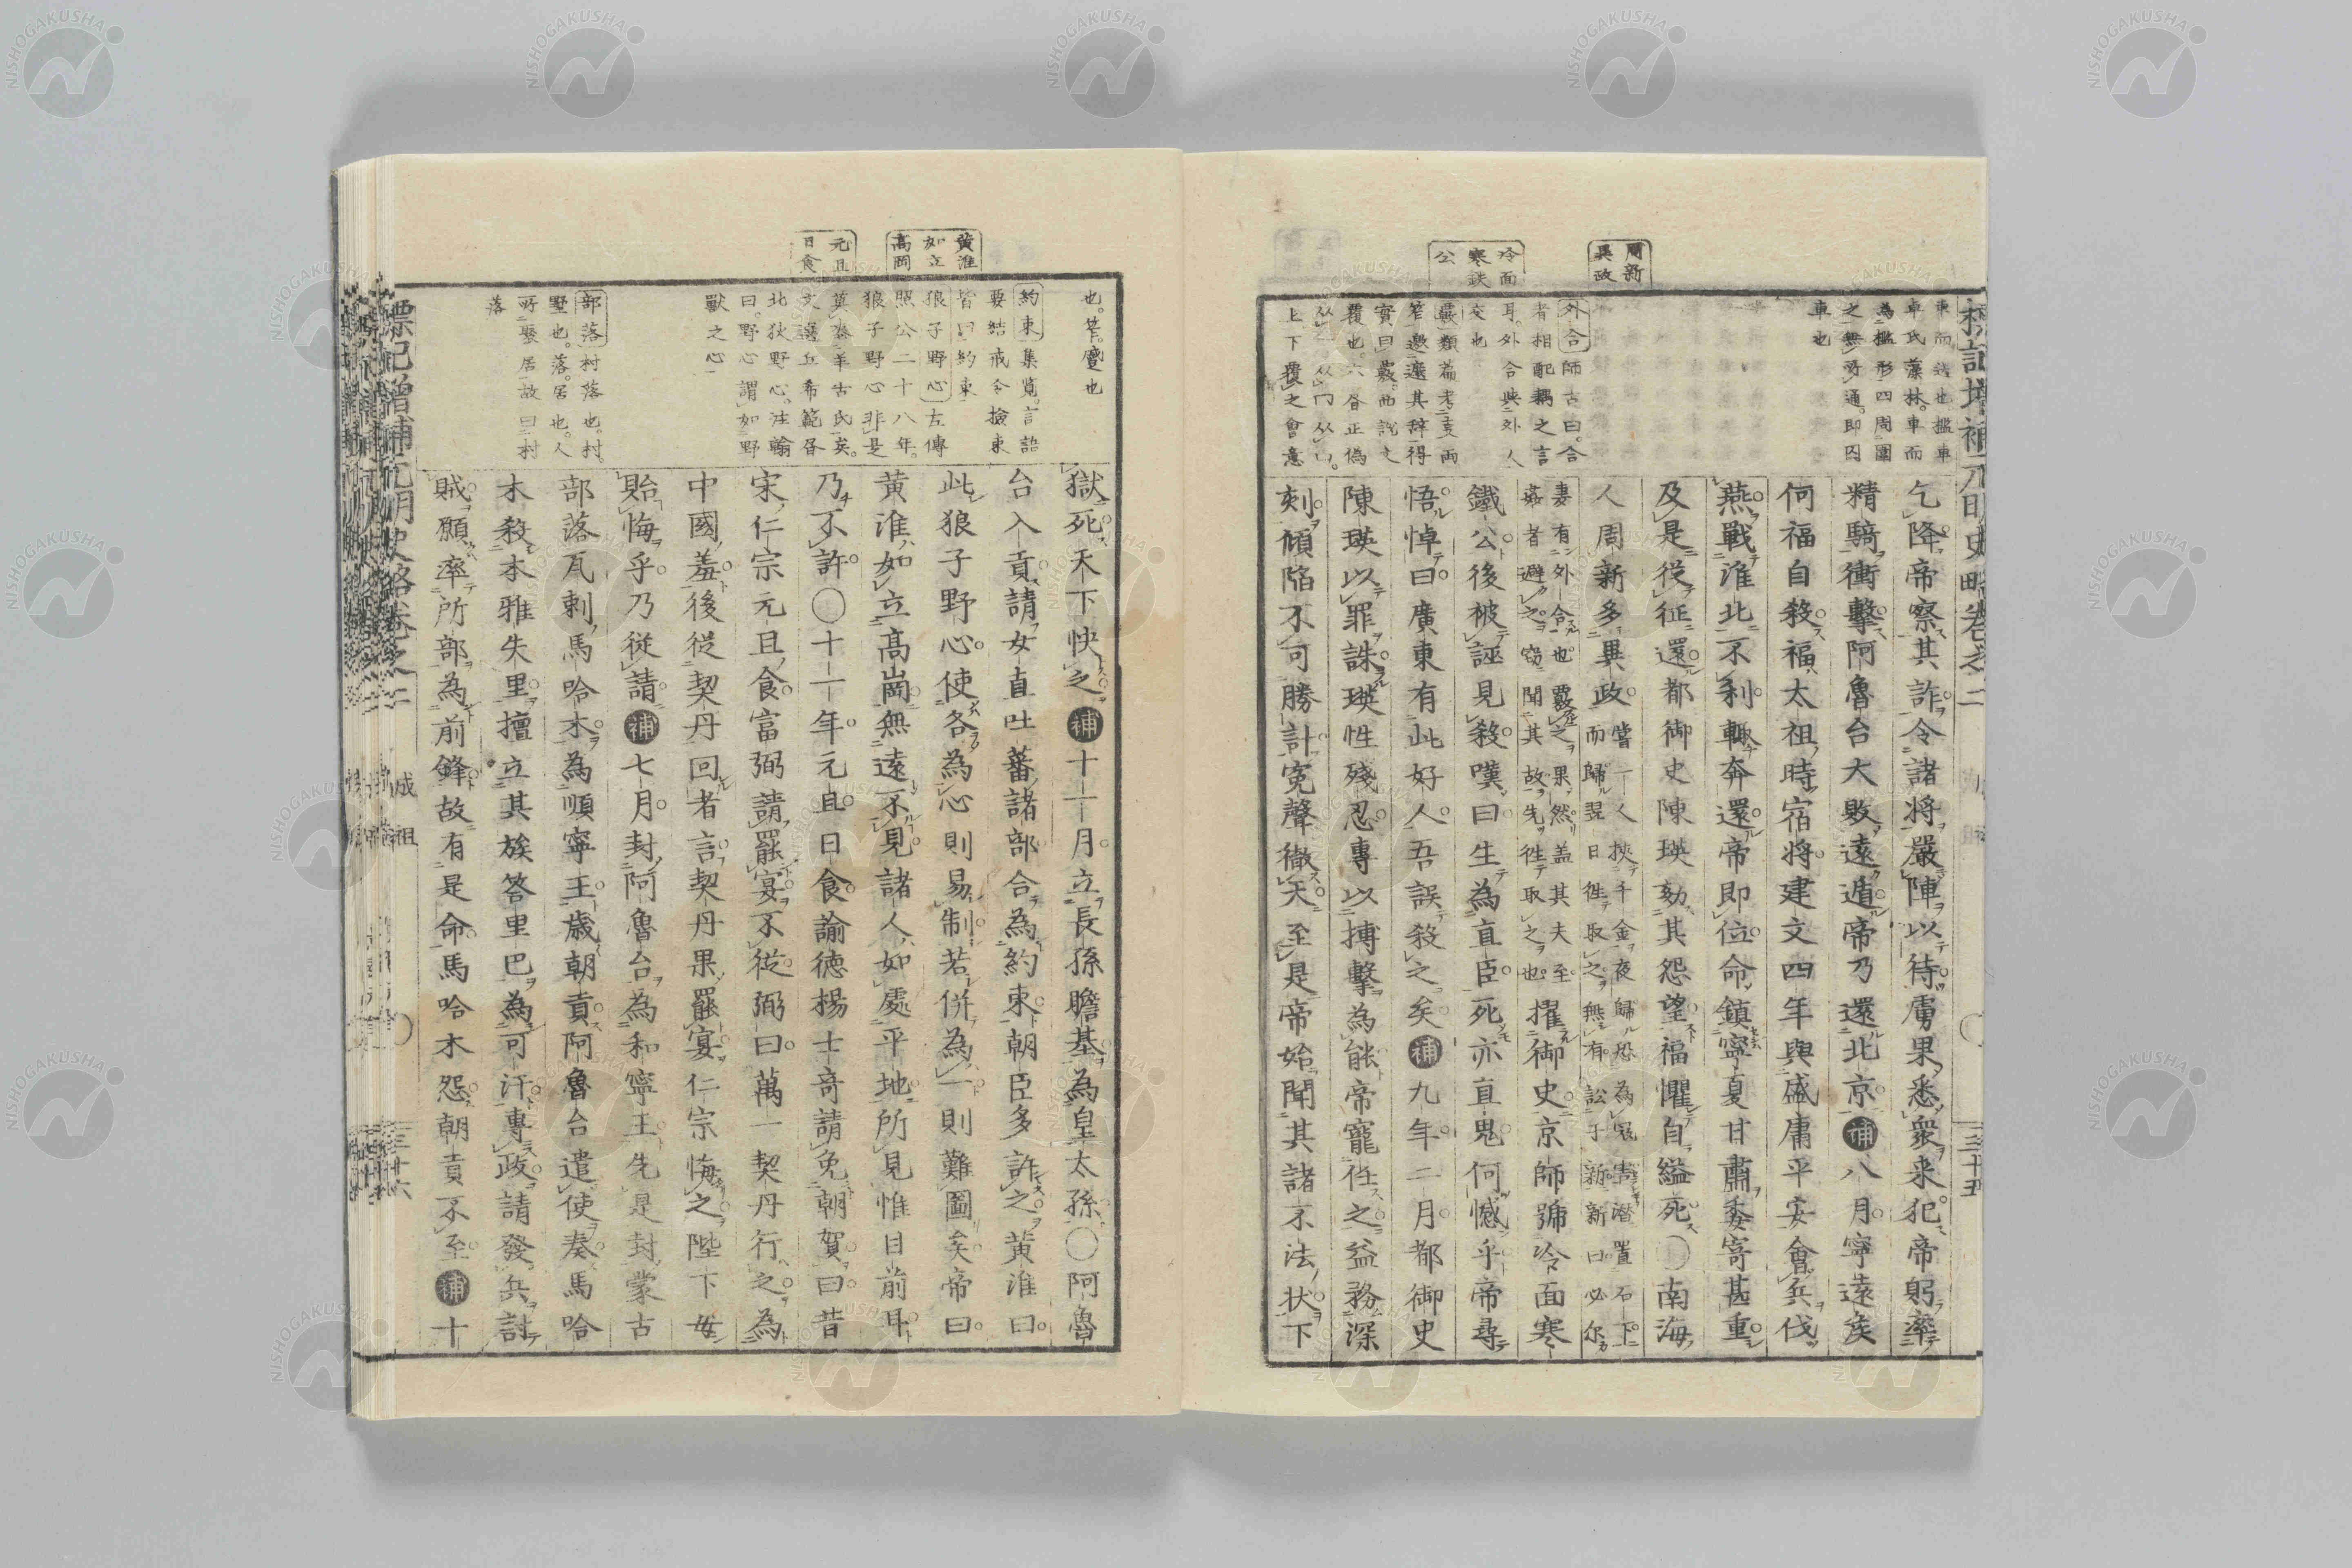 乞降帝察其詐令諸将嚴陣以待虜果悉衆来犯帝躬率
精騎衝擊阿魯台大敗遠遁帝乃還北京補八月寧遠矦
何福自殺福太祖時宿将建文四年與盛庸平安會兵伐
燕戰淮北不利輙奔還帝即位命鎮寧夏甘肅委寄甚重
及是從征還都御史陳瑛劾其怨望福懼自縊死○南海
人周新多異政嘗一人挾千金夜歸恐為冦害潜置石下
而歸翌日徃取之無有訟于新新曰必尔
妻有外合也覈之果然盖其夫至
姦者避之窃聞其故先徃取之也擢御史京師號冷面寒
鐵公後被誣見殺嘆曰生為直臣死亦直鬼何憾乎帝尋
悟悼曰廣東有此好人吾誤殺之矣補九年二月都御史
陳瑛以罪誅瑛性殘忍專以搏擊為能帝寵任之益務深
刻傾陷不可勝計寃聲徹天至是帝始聞其諸不法状下
周新
異政
冷面
寒鉄
公
車氏藻林車而
為檻形四周圍
之無所通即囚
車也
外合師古曰合
者相配耦之言
耳外合與外人
交也
覈類篇考事両
笮邀遮其辞得
實曰覈
上下覆之會意
三十五
獄死天下快之補十一月立長孫瞻基為皇太孫○阿魯
台入貢請女直吐蕃諸部合為約束朝臣多許之黄淮曰
此狼子野心使各為心則易制若併為一則難圖矣帝曰
黄淮如立高崗無遠不見諸人如處平地所見惟目前耳
乃不許○十一年元旦日食諭徳楊士竒請免朝賀曰昔
宋仁宗元旦食富弼請罷宴不從弼曰萬一契丹行之為
中國羞後從契丹回者言契丹果罷宴仁宗悔之陛下毋
貽悔乎乃從請補七月封阿魯台為和寧王先是封蒙古
部落瓦剌馬哈木為順寧王歳朝貢阿魯台遣使奏馬哈
木殺本雅失里擅立其族答里巴為可汗專政請發兵討
賊願率所部為前鋒故有是命馬哈木怨朝貢不至補十
黄淮
如立
高岡
元旦
日食
約束集覽言語
要結戒令撿束
皆曰約束
狼子野心左傳
照公二十八年
狼子野心非是
莫喪羊舌氏矣
北狄野心注翰
曰野心謂如野
獸之心
部落村落也村
墅也落居也人
所聚居故曰村
落
標記增補元明史略卷之二
成祖